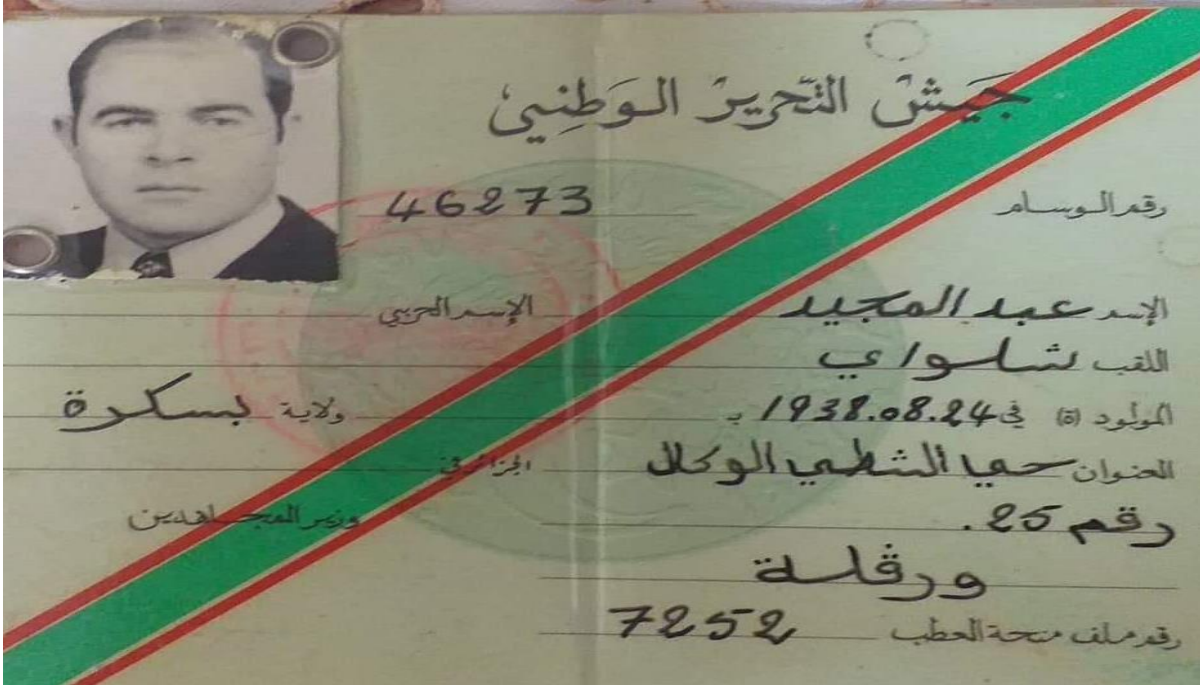 جَيْشْ التَّحْرِيرْ الوَطِنِيْ
رقم الوسام 46273
الإسم عبد المجيد الإسم الحربي
اللقب شلواي
المولود (ة) في 1938.08.24 بـ ولاية بسكرة
العنوان حي الشطي الوكال الجزائر في
رقم 25. وزير المجاهدين
ورقلة
رقم ملف منحة العطب 7252